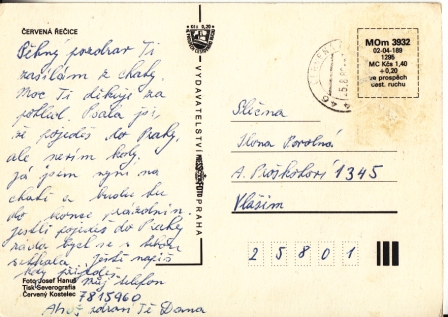 ČERVENÁ ŘEČICE
Pěkný pozdrav Ti
zasílám z chaty.
Moc Ti děkuji za
pohled. Psala jsi,
že pojedeš do Prahy,
ale nevím kdy.
Já jsem nyní na
chatě a budu tu
do konce prázdnin.
Jestli pojedeš do Prahy
ráda bych se s Tebou
setkala. Jestli napiš
kdy přijedeš.
můj telefon
7815960
Ahoj zdraví Tě Dana
Foto Josef Hanuš
Tisk Severografia
Červený Kostelec
VYDAVATELSTVÍ
PRAHA
MOm 3932
02-04-189
1295
MC Kčs 1,40
+0,20
ve prospěch
cest. ruchu
Slečna
Ilona Povolná
A. Proškových 1345
Vlašim
25801